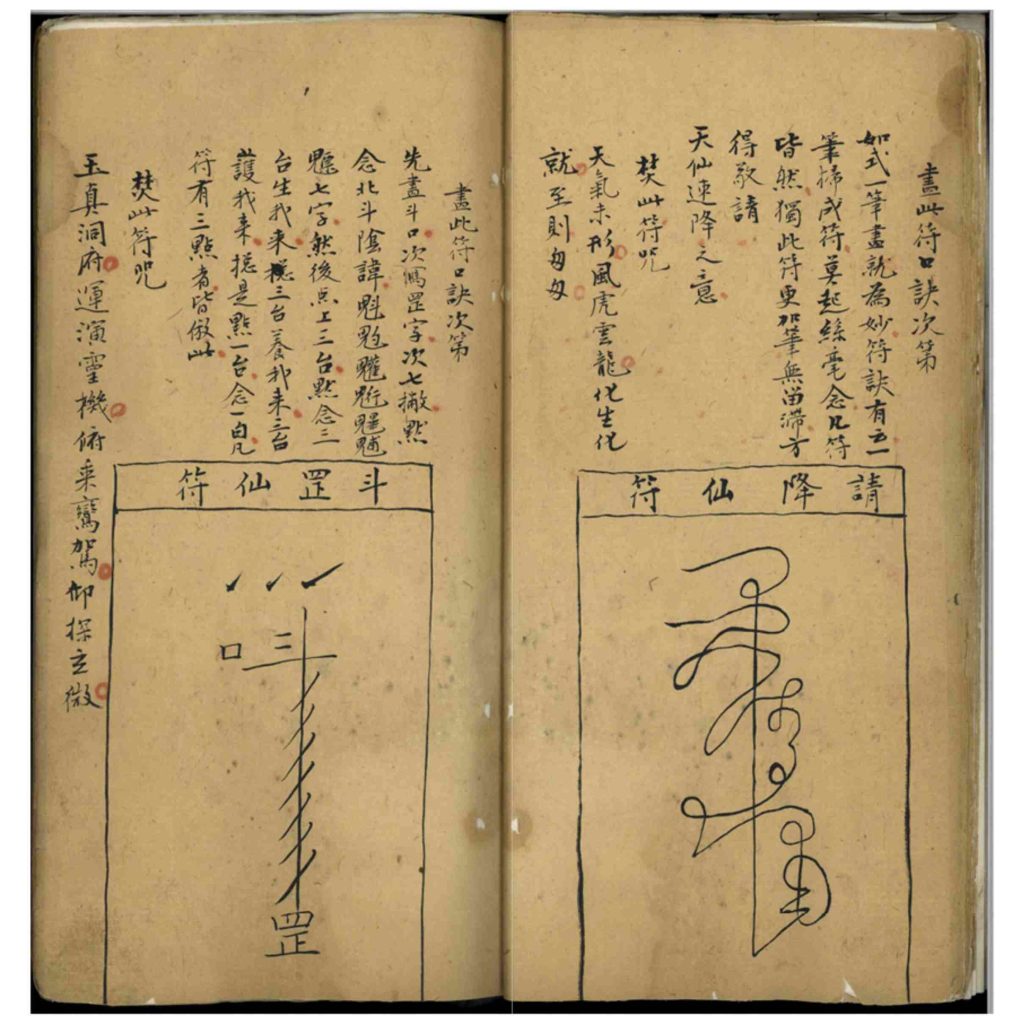 畫此符口訣次第
如式一筆畫就為妙符訣有云一
筆掃成符莫起絲毫念凡符
皆然獨此符更加筆無留滯方
得敬請
天仙速降之意
焚此符咒
天氣未形風虎雲龍化生化
就至則匆匆
請降仙符
畫此符口訣次第
先畫斗口次寫罡字次七撇點
念北斗陰諱魁𩲃魓
七字然後点上三台點念三
台生我来三台養我来三台
護我来揔是點一台念一句凡
符有三點者皆倣此
焚此符咒
玉真洞府運演靈機俯来鸞駕仰探玄微
斗罡仙符
口三斗
罡